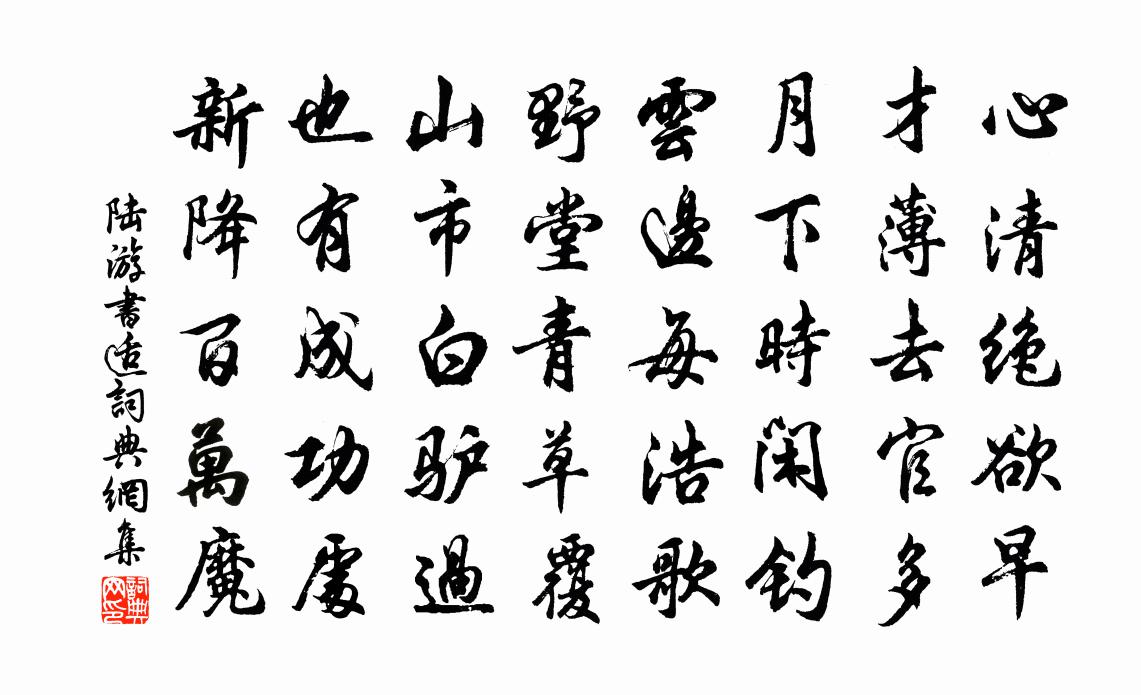 心清绝欲早
才薄去官多
月下時閑钓
雲邊每浩歌
野堂青草覆
山市白驴過
也有成功處
新降百萬魔
陆游書适詞典網集
詞典網印